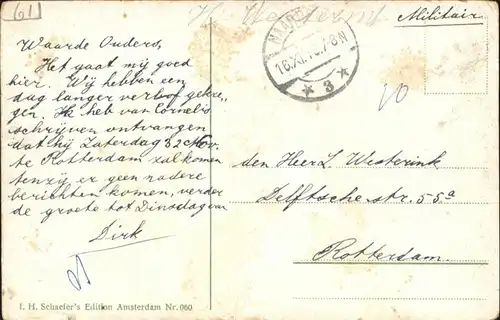 61
H. Westerink
Militair
Waarde Ouders,
Het gaat mij goed
hier. Wij hebben een
dag langer verlof gekre-
gen. Ik heb van Cornelis
schrijven ontvangen
dat hij Zaterdag 32 Nov.
te Rotterdam zal komen
tenzij er geen nadere
berichten komen, verder
de groete tot Dinsdag van
Dirk
16.XI. 7-8N
* 3 *
den Heer L. Westerink
Delftsche str. 55a
Rotterdam.
I. H. Schaefer's Edition Amsterdam Nr. 060